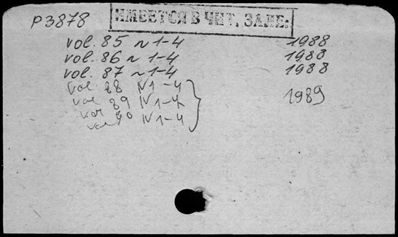 P3878
ИМЕЕТСЯ В ЧИТ. ЗАЛЕ.
vol. 85 N 1-4 1988
vol. 86 N 1-4 1988
vol. 87 N 1-4 1988
vol. 88 N 1-4
vol 89 N 1-4 1989
vol 90 N 1-4